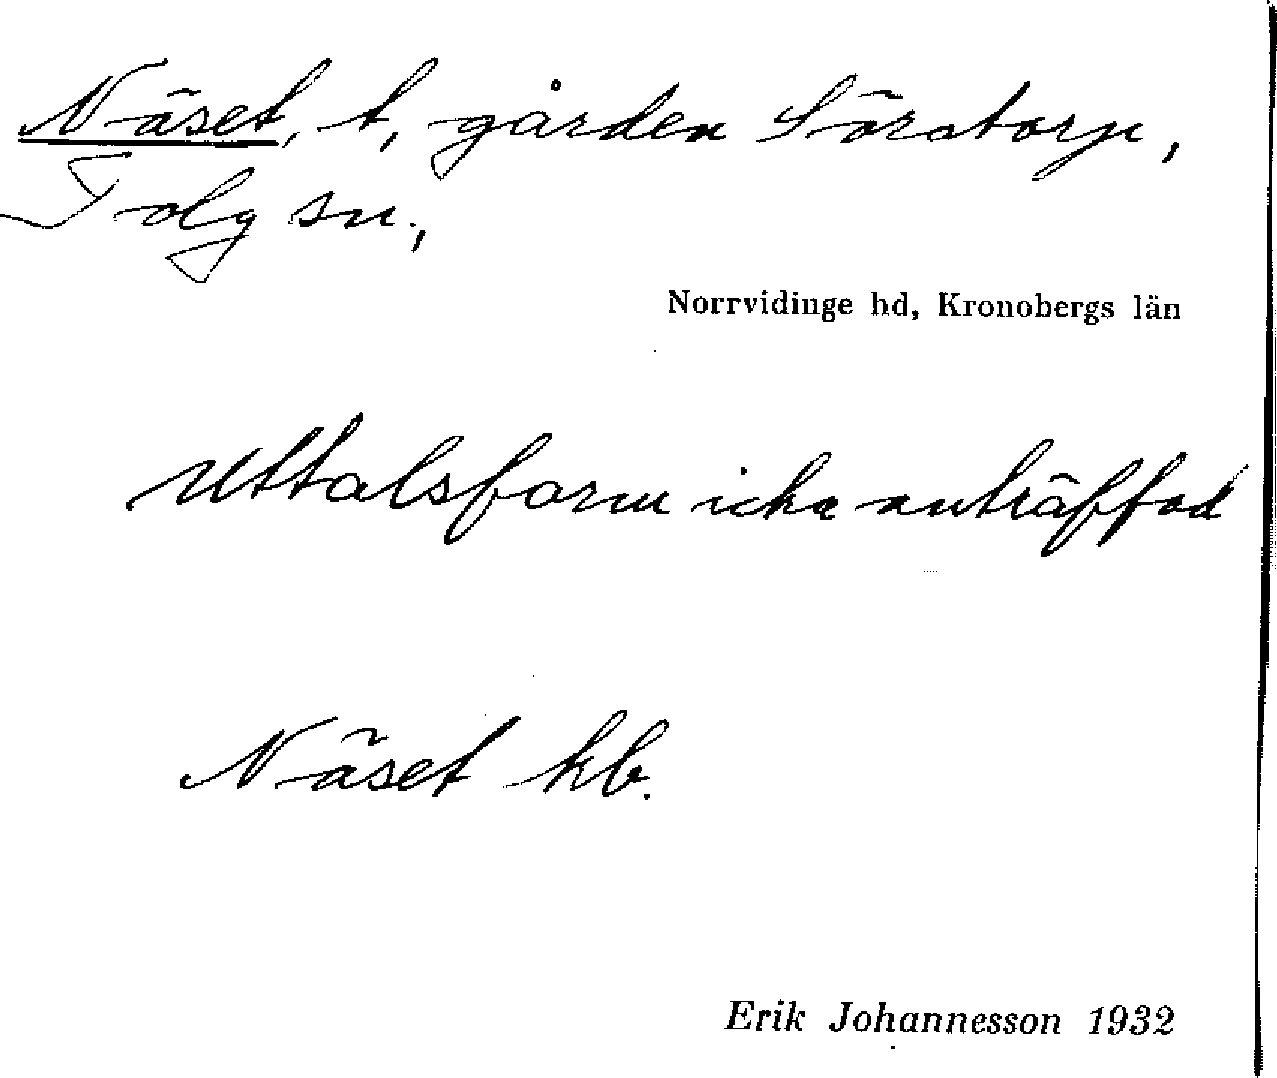 Näset, t, gården Söratorp,
Tolg sn.,
Norrvidinge hd, Kronobergs län
Uttalsform icke anträffad
Näset kb.
Erik Johannesson 1932